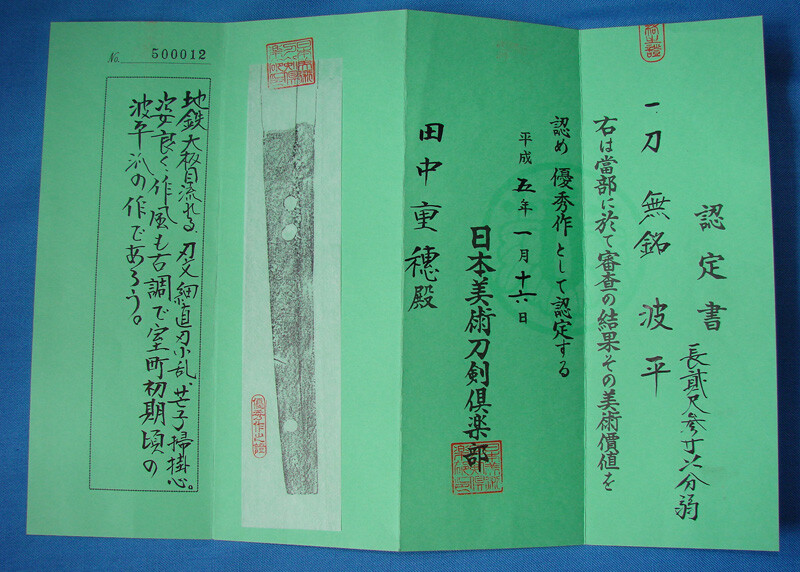 認定書
一刀 無銘 波平
長貳尺参寸六分弱
右は當部に於て審査の結果その美術價値を
認め優秀作として認定する
平成五年一月十六日
日本美術刀剣倶楽部
田中重穂殿
優秀作之證
No. 500012
地鉄大板目流れる、刃文細直刃小乱、芒子掃掛心。
姿良く、作風も古調で室町初期頃の
波平派の作であろう。